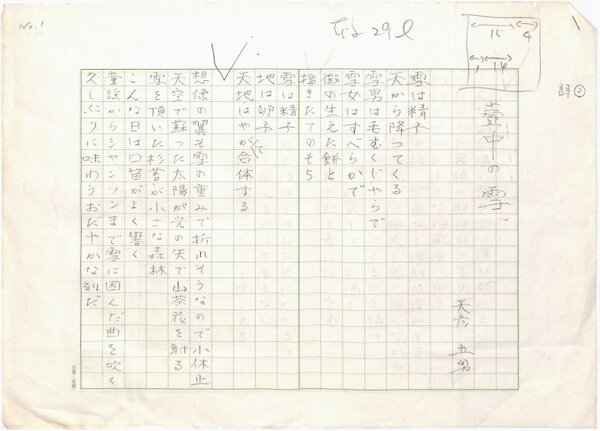 No.1
29
15
4
1
14
1
詩②
壺中の雪
天彦 五男
雪は精子
天から降ってくる
雪男は毛むくじゃらで
雪女はすべらかで
黴の生えた餅と
搗きたてのそち
雪は精子
地は卵子
天地はやがて合体する
想像の翼も雪の重みで折れそうなので小休止
天空で蘇った太陽が光の矢で山茶花を射る
雪を頂いた杉苔が小さな森林
こんな日は口笛がよく響く
童謡からシャンソンまで雪に因んだ曲を吹く
久しぶりに味わうおだやかな刻だ